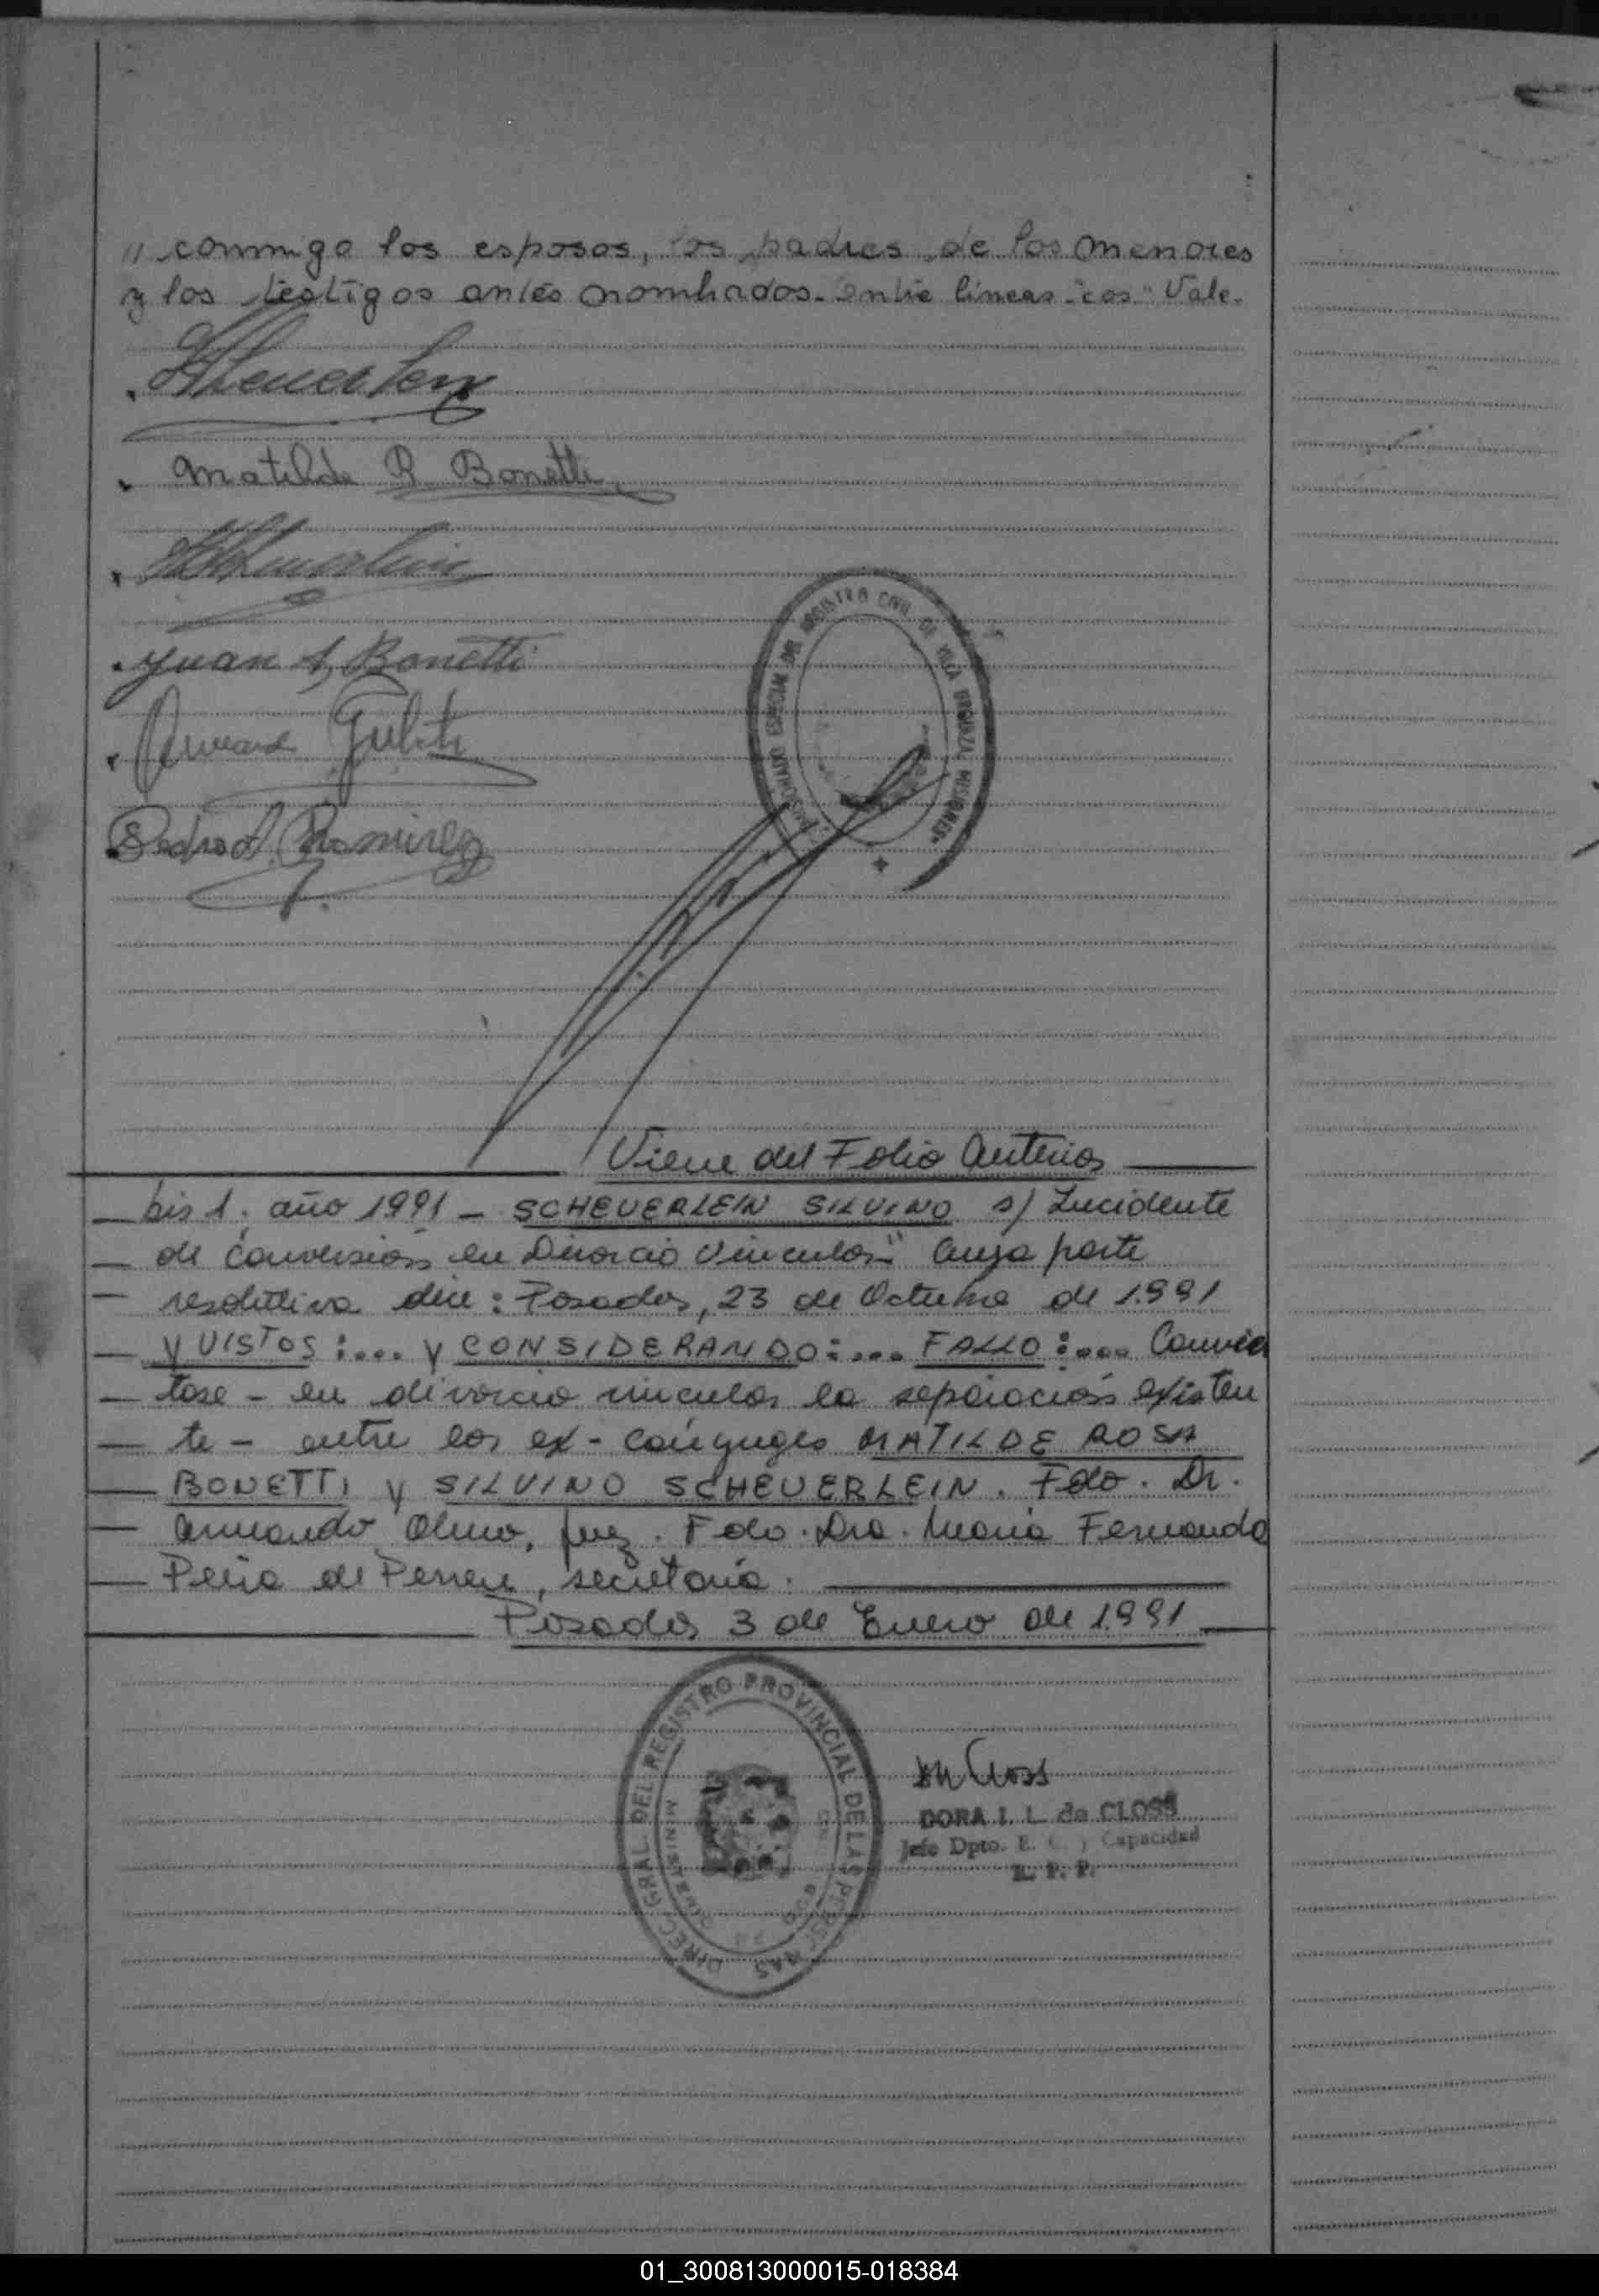 " conmigo los esposos, los padres de los menores
y los testigos antes nombrados. Entre líneas "cos" Vale.
Scheuerlein
Matilde R. Bonetti
Scheuerlein
Juan A. Bonetti
Pedro A. Ramirez
ESPECIAL DEL REGISTRO CIVIL DE VILLA URQUIZA MISIONES
Viene del Folio Anterior
bis 1. año 1991 - SCHEUERLEIN SILVINO s/ Incidente
de conversión en Divorcio Vincular" Cuya parte
resolutiva dice: Posadas, 23 de Octubre de 1.991
Y VISTOS:.... y CONSIDERANDO:.... FALLO:.... Convier
tase - en divorcio vincular la separación existen
te - entre los ex-cónyuges MATILDE ROSA
BONETTI y SILVINO SCHEUERLEIN. Fdo. Dr.
Armando Olmo, Juez. Fdo. Dra. Maria Fernanda
Peña de Perren, secretaria.
Posadas 3 de Enero de 1.991
DIREC. GRAL. DEL REGISTRO PROVINCIAL DE LAS PERSONAS
MINISTERIO
DORA I. L. de CLOSS
Jefe Dpto. E. C. y Capacidad
R. P. P.
01_300813000015-018384